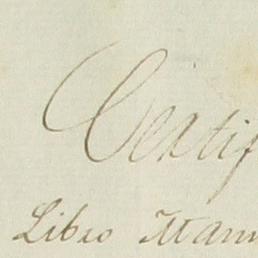 Certif
Libro Mann